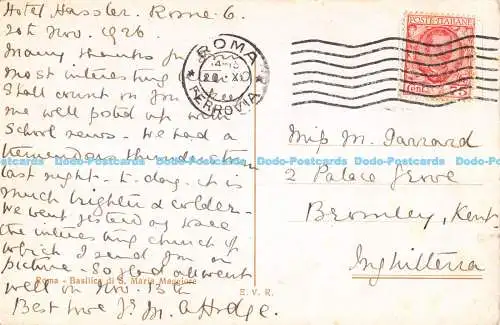 Hotel Hassler. Rome. 6.
20th Nov. 1926
Many thanks for
most interesting
Shall count on you
me well posted up with
School news. We had a
tremendous thunderstorm
last night - to-day it is
much brighter & colder -
We went yesterday
the interesting church of
which I send you a
picture - So glad all went
well on Nov. 13th
Best love
Roma - Basilica di S. Maria Maggiore
E. V. R.
ROMA
FERROVIA
POSTE ITALIANE
Cent. 75
Miss M. Garrard
2 Palace Grove
Bromley, Kent.
Inghilterra
Dodo-Postcards Dodo-Postcards Dodo-Postcards Dodo-Postcards Dodo-Postcards